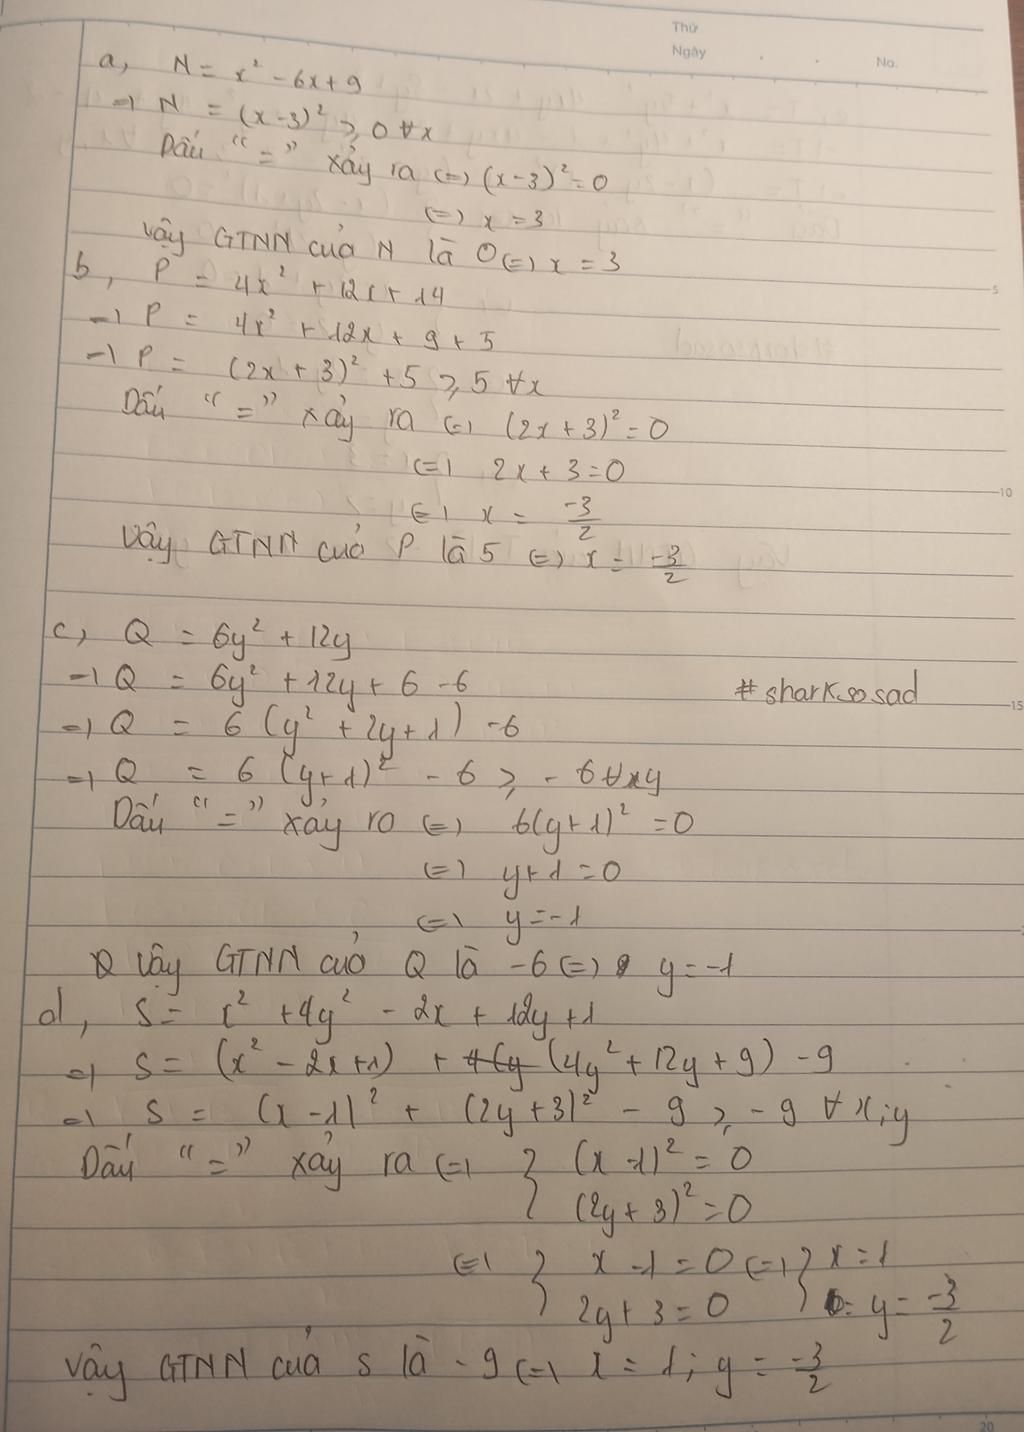 Thứ
Ngày
No.
a, N = x² - 6x + 9
=> N = (x-3)² ≥ 0 ∀x
Dấu "=" xảy ra <=> (x-3)² = 0
<=> x = 3
Vậy GTNN của N là 0 <=> x = 3
b, P = 4x² + 12x + 14
=> P = 4x² + 12x + 9 + 5
=> P = (2x + 3)² + 5 ≥ 5 ∀x
Dấu "=" xảy ra <=> (2x + 3)² = 0
<=> 2x + 3 = 0
<=> x = -3/2
Vậy GTNN của P là 5 <=> x = -3/2
c, Q = 6y² + 12y
=> Q = 6y² + 12y + 6 - 6
#sharksosad
=> Q = 6 (y² + 2y + 1) - 6
=> Q = 6 (y + 1)² - 6 ≥ -6 ∀y
Dấu "=" xảy ra <=> 6(y + 1)² = 0
<=> y + 1 = 0
<=> y = -1
Vậy GTNN của Q là -6 <=> y = -1
d, S = x² + 4y² - 2x + 12y + 1
=> S = (x² - 2x + 1) + (4y² + 12y + 9) - 9
=> S = (x - 1)² + (2y + 3)² - 9 ≥ -9 ∀x;y
Dấu "=" xảy ra <=> { (x - 1)² = 0
(2y + 3)² = 0
<=> { x - 1 = 0 <=> { x = 1
2y + 3 = 0 y = -3/2
Vậy GTNN của S là -9 <=> x = 1; y = -3/2
5
10
15
20